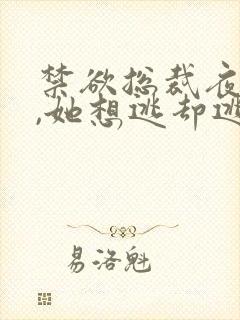 禁欲总裁夜
,她想逃却逃
易洛魁